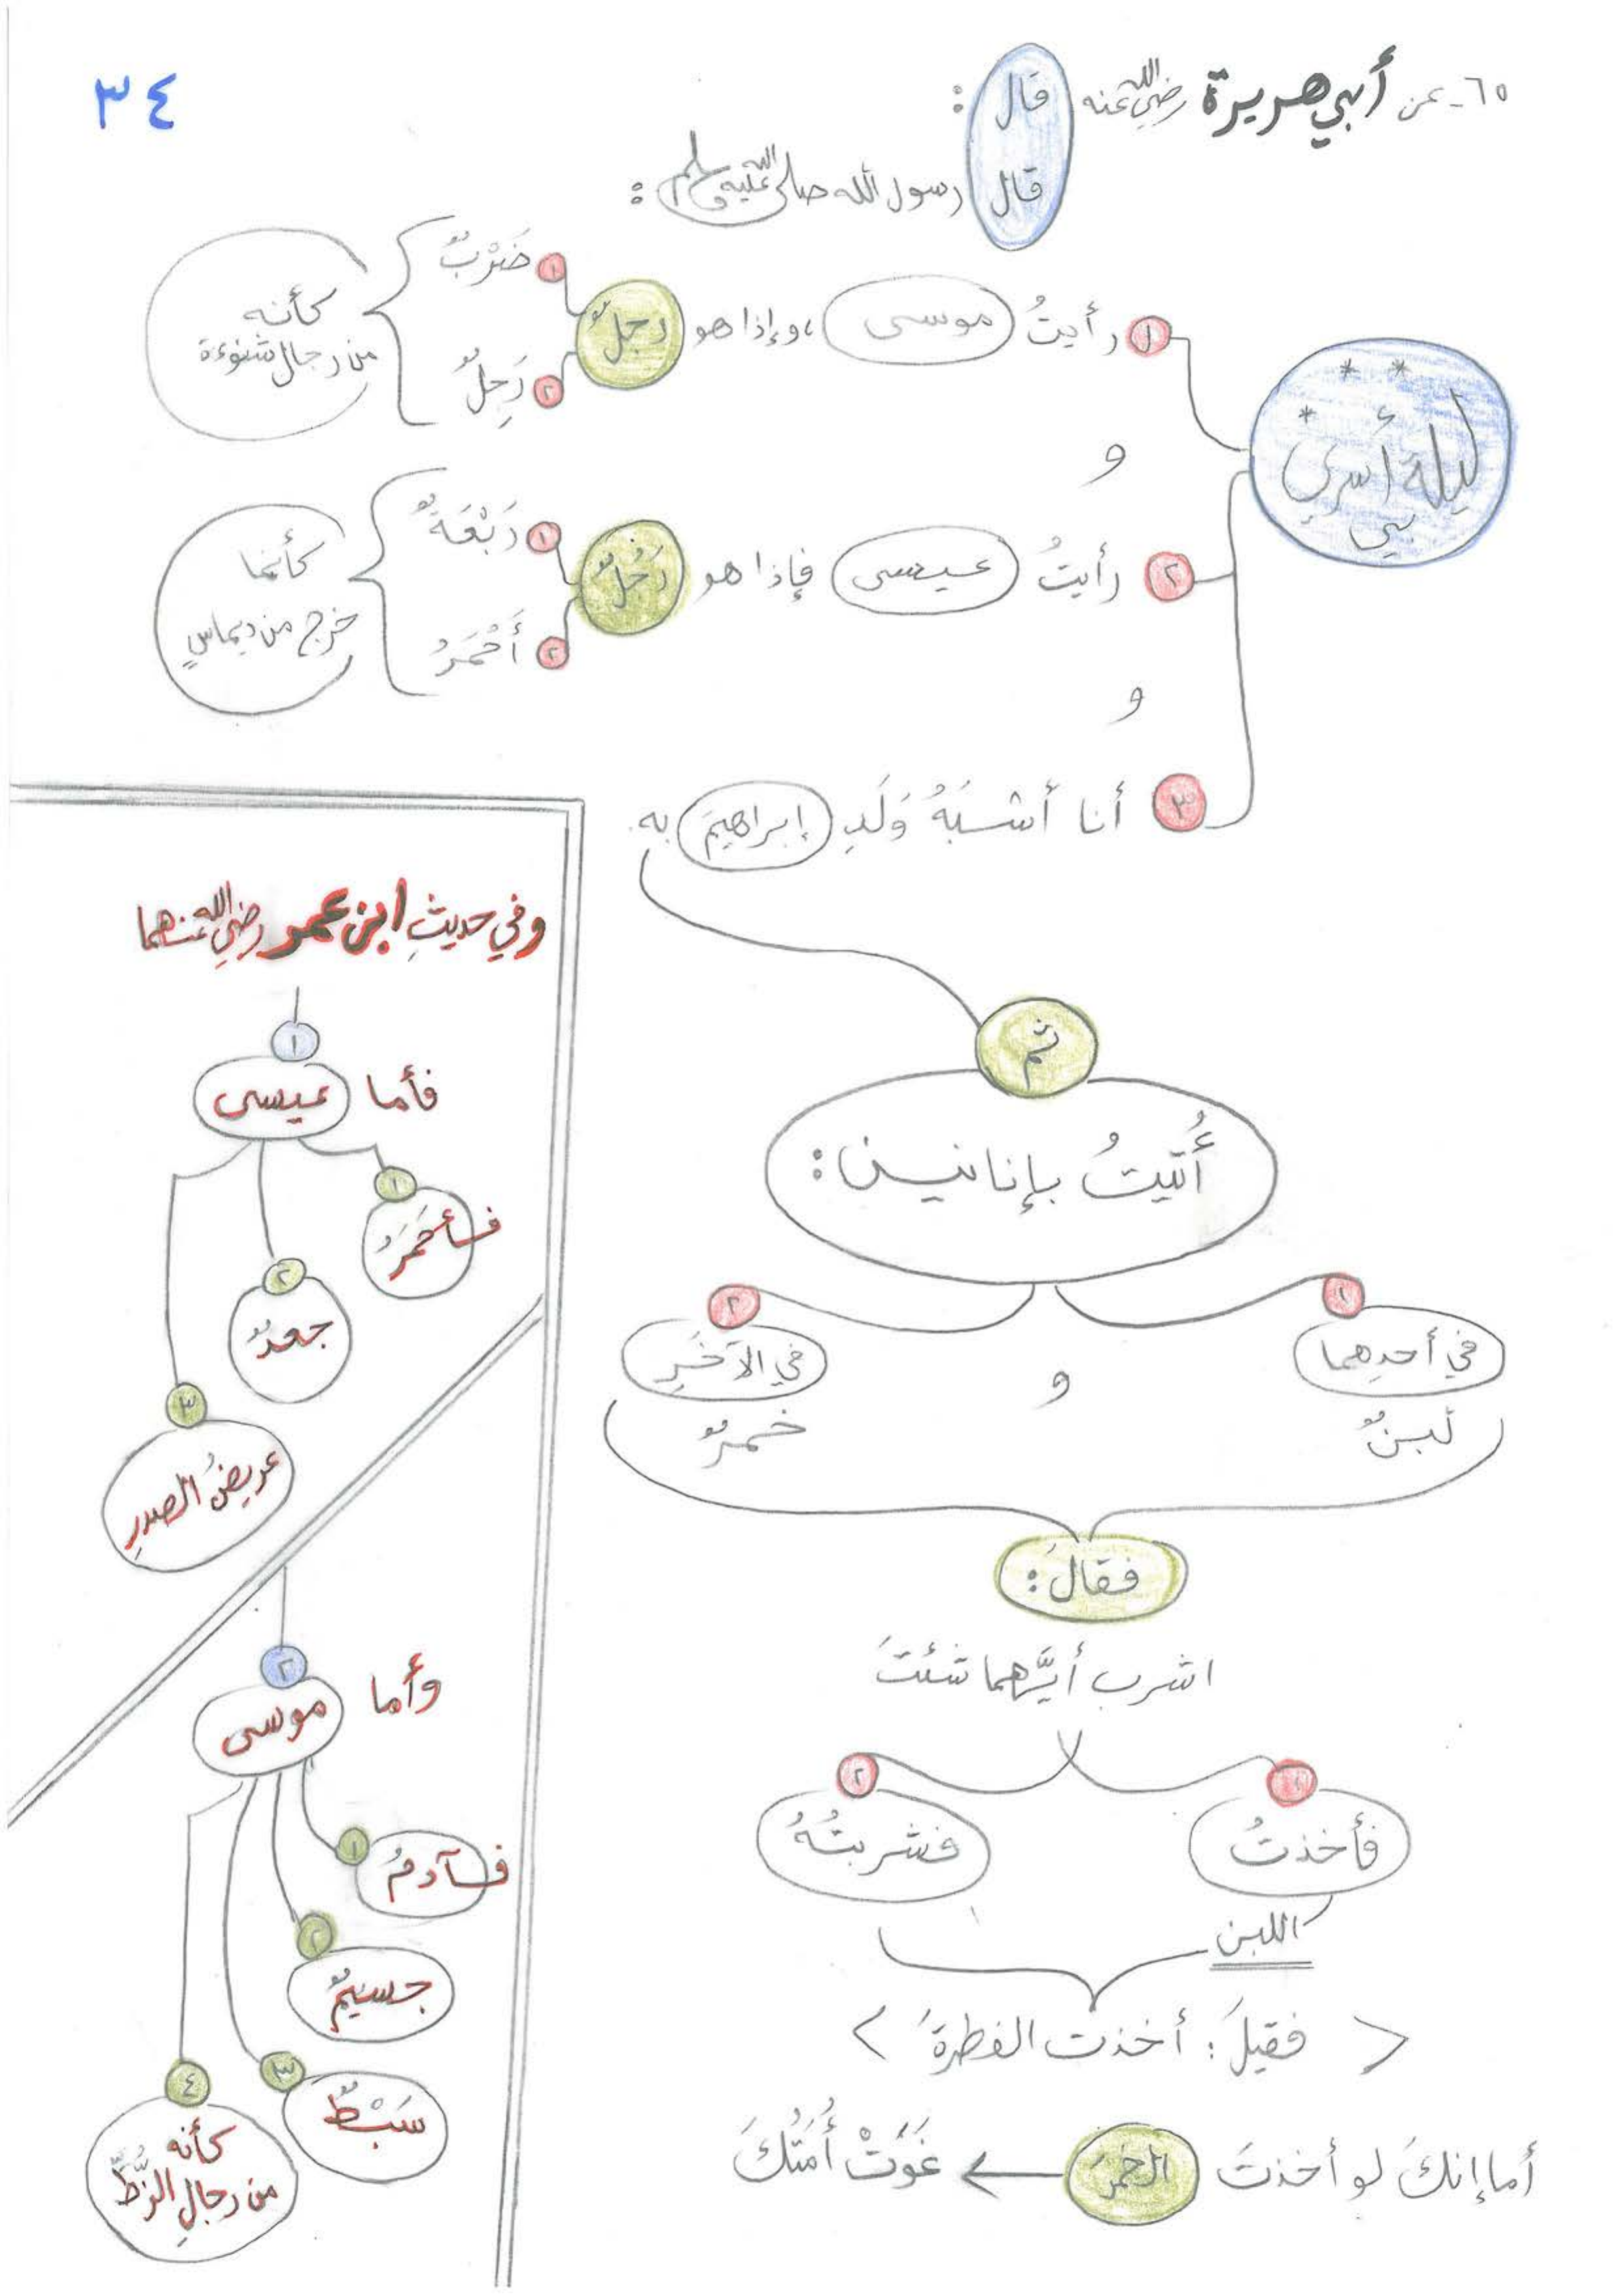 ٣٤
٦٥- عن أبي هريرة رضي الله عنه قال :
قال رسول الله صلى الله عليه وسلم :
ليلة أُسريَ بي
١ رأيتُ موسى ، وإذا هو رجلٌ
١ ضَرْبٌ
٢ رَجِلٌ
كأنه
من رجال شنوءة
و
٢ رأيتُ عيسى فإذا هو رَجُلٌ
١ رَبْعَةٌ
٢ أَحْمَرُ
كأنما
خرج من ديماسٍ
و
٣ أنا أشبَهُ وَلَدِ إبراهيمَ به.
ثم
أُتيتُ بإناءين :
١ في أحدِهما
لبنٌ
و
٢ في الآخَرِ
خمرٌ
فقالَ :
اشرب أيَّهما شئتَ
١ فأخذتُ
اللبن
٢ فشربتُهُ
< فقيلَ : أخذت الفطرةَ >
أما إنكَ لو أخذتَ الخمرَ ← غَوَتْ أُمَّتُكَ
وفي حديثِ ابن عمر رضي الله عنهما
١
فأما عيسى
١
فأحمَرُ
٢
جعدٌ
٣
عريضُ الصدرِ
٢
وأما موسى
١
فآدمُ
٢
جسيمٌ
٣
سَبْطٌ
٤
كأنه
من رجالِ الزُّطِّ